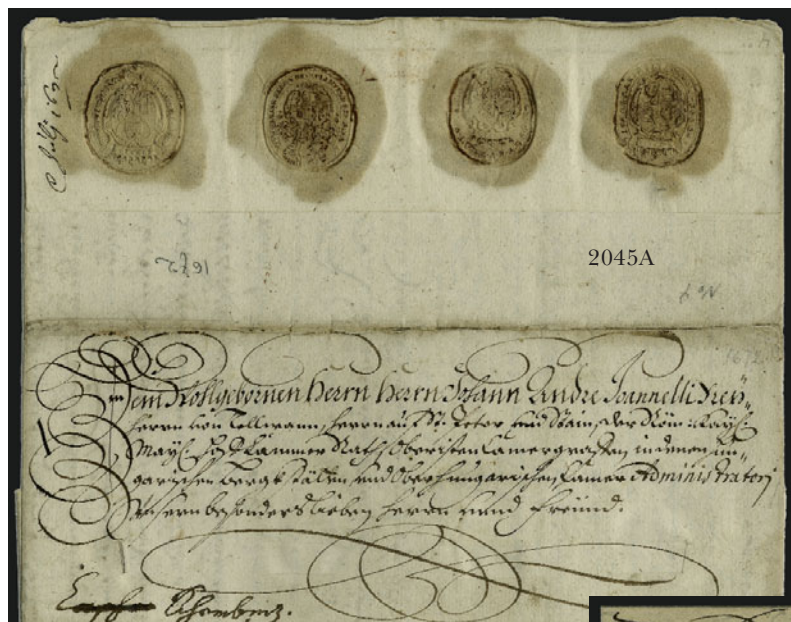 1672
2045A
No 7
1672
Dem Wollgebornen Herrn Herrn Johann Andre Joannelli Frey-
herrn von Tellwana, Herrn auf St. Peter und Stain, der Röm: Kay:
May: Hof Cammer Rath, Obristen Camergraffen in denen un-
garischen Bergk Stätten, und Oberhungarischen Camer Administratorj
Unsern besonders lieben Herrn und Freund.
Schembnitz.